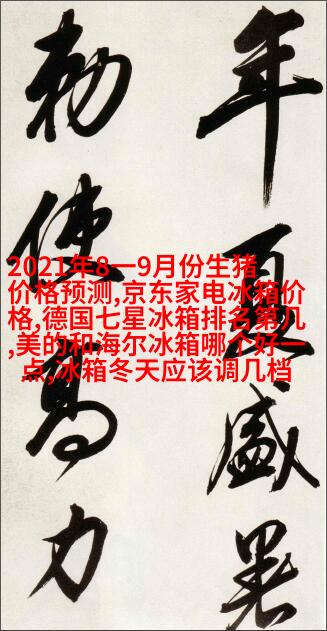 年夏盛暑
勅使高力
2021年8一9月份生猪
价格预测,京东家电冰箱价
格,德国七星冰箱排名第九
,美的和海尔冰箱哪个好一
点,冰箱冬天应该调几档